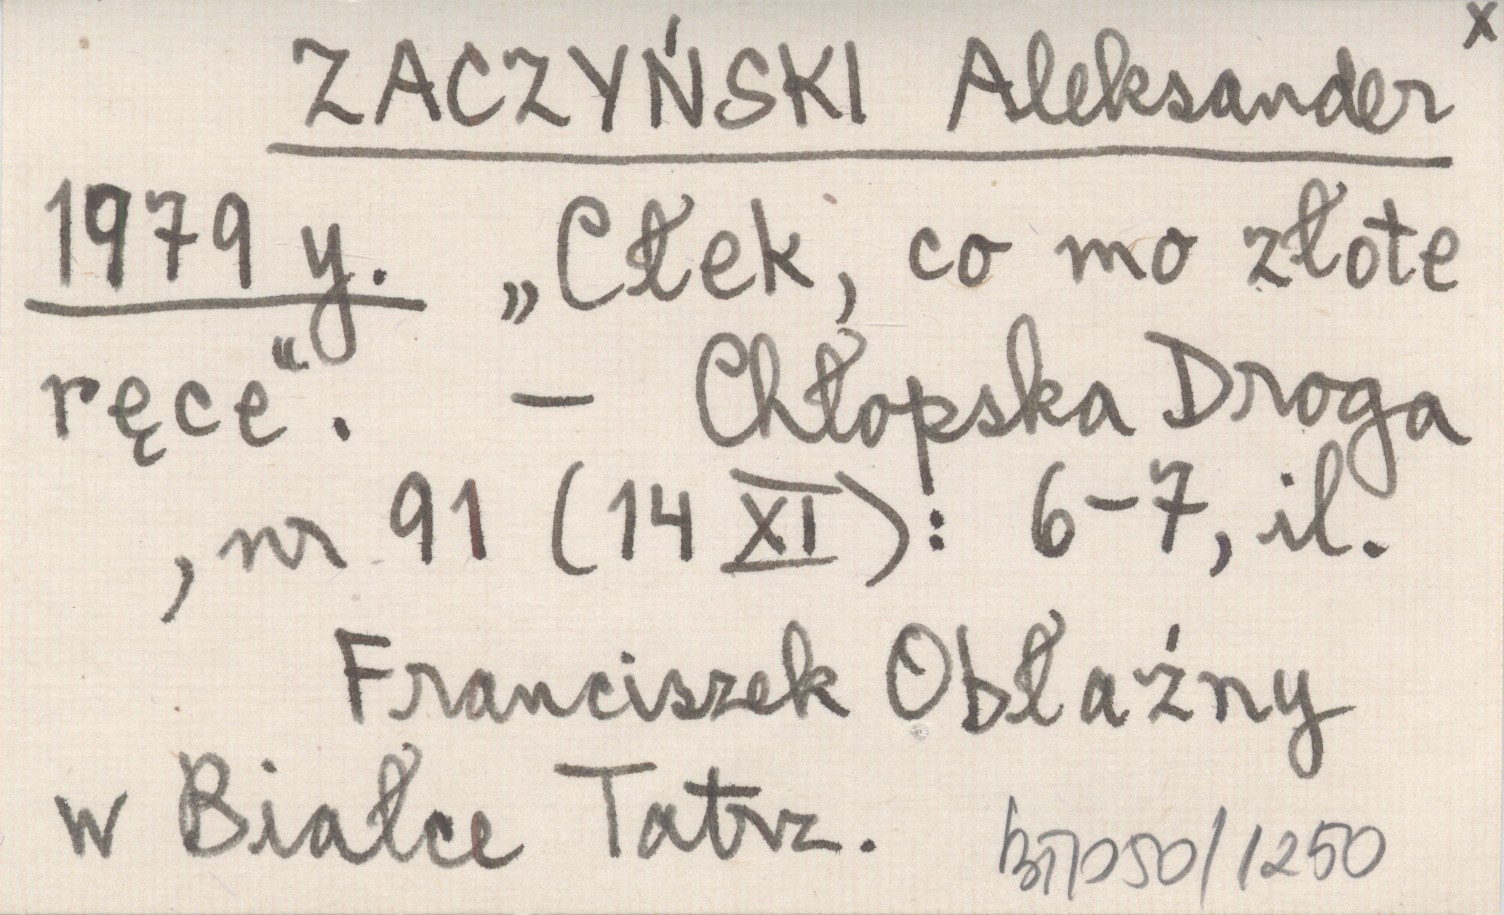 x
ZACZYŃSKI Aleksander
1979 y. „Cłek, co mo złote
ręce“. – Chłopska Droga
, nr 91 (14 XI): 6–7, il.
Franciszek Obłaźny
w Białce Tatrz.
/1250